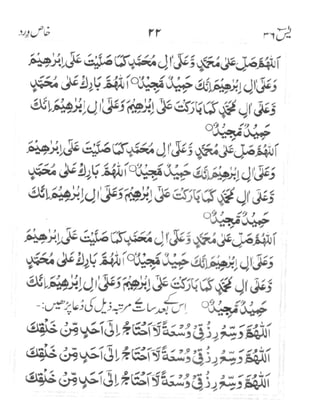 یٰسٓ ۳۶ ۲۲ خاص ورد
اَللّٰهُمَّ صَلِّ عَلٰی مُحَمَّدٍ وَّعَلٰٓی اٰلِ مُحَمَّدٍ کَمَا صَلَّیْتَ عَلٰٓی اِبْرٰهِیْمَ
وَعَلٰٓی اٰلِ اِبْرٰهِیْمَ اِنَّکَ حَمِیْدٌ مَّجِیْدٌ ○ اَللّٰهُمَّ بَارِکْ عَلٰی مُحَمَّدٍ
وَّعَلٰٓی اٰلِ مُحَمَّدٍ کَمَا بَارَکْتَ عَلٰٓی اِبْرٰهِیْمَ وَعَلٰٓی اٰلِ اِبْرٰهِیْمَ اِنَّکَ
حَمِیْدٌ مَّجِیْدٌ ○
اَللّٰهُمَّ صَلِّ عَلٰی مُحَمَّدٍ وَّعَلٰٓی اٰلِ مُحَمَّدٍ کَمَا صَلَّیْتَ عَلٰٓی اِبْرٰهِیْمَ
وَعَلٰٓی اٰلِ اِبْرٰهِیْمَ اِنَّکَ حَمِیْدٌ مَّجِیْدٌ ○ اَللّٰهُمَّ بَارِکْ عَلٰی مُحَمَّدٍ
وَّعَلٰٓی اٰلِ مُحَمَّدٍ کَمَا بَارَکْتَ عَلٰٓی اِبْرٰهِیْمَ وَعَلٰٓی اٰلِ اِبْرٰهِیْمَ اِنَّکَ
حَمِیْدٌ مَّجِیْدٌ ○
اَللّٰهُمَّ صَلِّ عَلٰی مُحَمَّدٍ وَّعَلٰٓی اٰلِ مُحَمَّدٍ کَمَا صَلَّیْتَ عَلٰٓی اِبْرٰهِیْمَ
وَعَلٰٓی اٰلِ اِبْرٰهِیْمَ اِنَّکَ حَمِیْدٌ مَّجِیْدٌ ○ اَللّٰهُمَّ بَارِکْ عَلٰی مُحَمَّدٍ
وَّعَلٰٓی اٰلِ مُحَمَّدٍ کَمَا بَارَکْتَ عَلٰٓی اِبْرٰهِیْمَ وَعَلٰٓی اٰلِ اِبْرٰهِیْمَ اِنَّکَ
حَمِیْدٌ مَّجِیْدٌ ○ اس کے بعد سات مرتبہ ذیل کی دُعا پڑھیں:-
اَللّٰهُمَّ وَسِّعْ رِزْقِیْ وُسْعَةً لَّا اَحْتَاجُ اِلٰٓی اَحَدٍ مِّنْ خَلْقِکَ
اَللّٰهُمَّ وَسِّعْ رِزْقِیْ وُسْعَةً لَّا اَحْتَاجُ اِلٰٓی اَحَدٍ مِّنْ خَلْقِکَ
اَللّٰهُمَّ وَسِّعْ رِزْقِیْ وُسْعَةً لَّا اَحْتَاجُ اِلٰٓی اَحَدٍ مِّنْ خَلْقِکَ